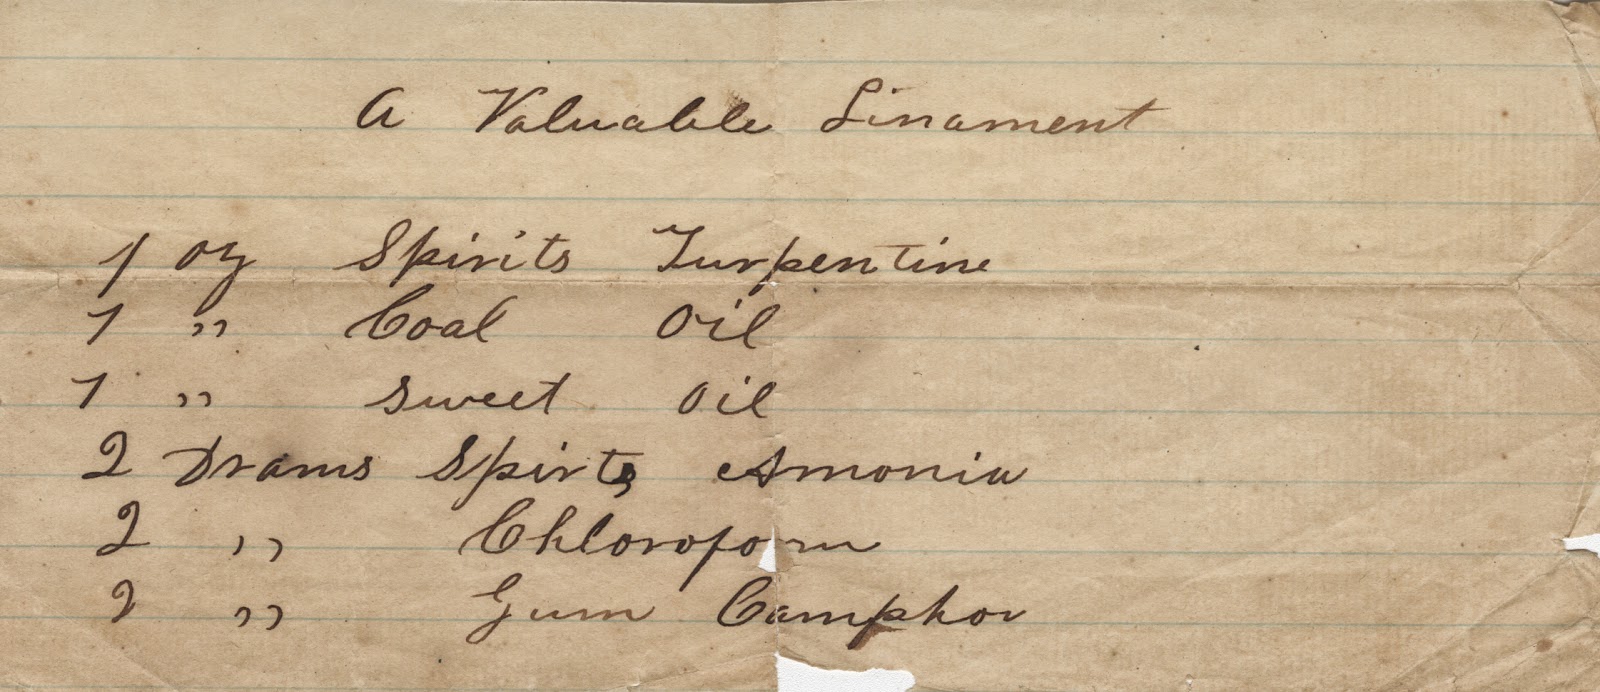 A Valuable Linament
1 oz Spirits Turpentine
1 " Coal Oil
1 " Sweet Oil
2 Drams Spirts Amonia
2 " Chloroform
2 " Gum Camphor